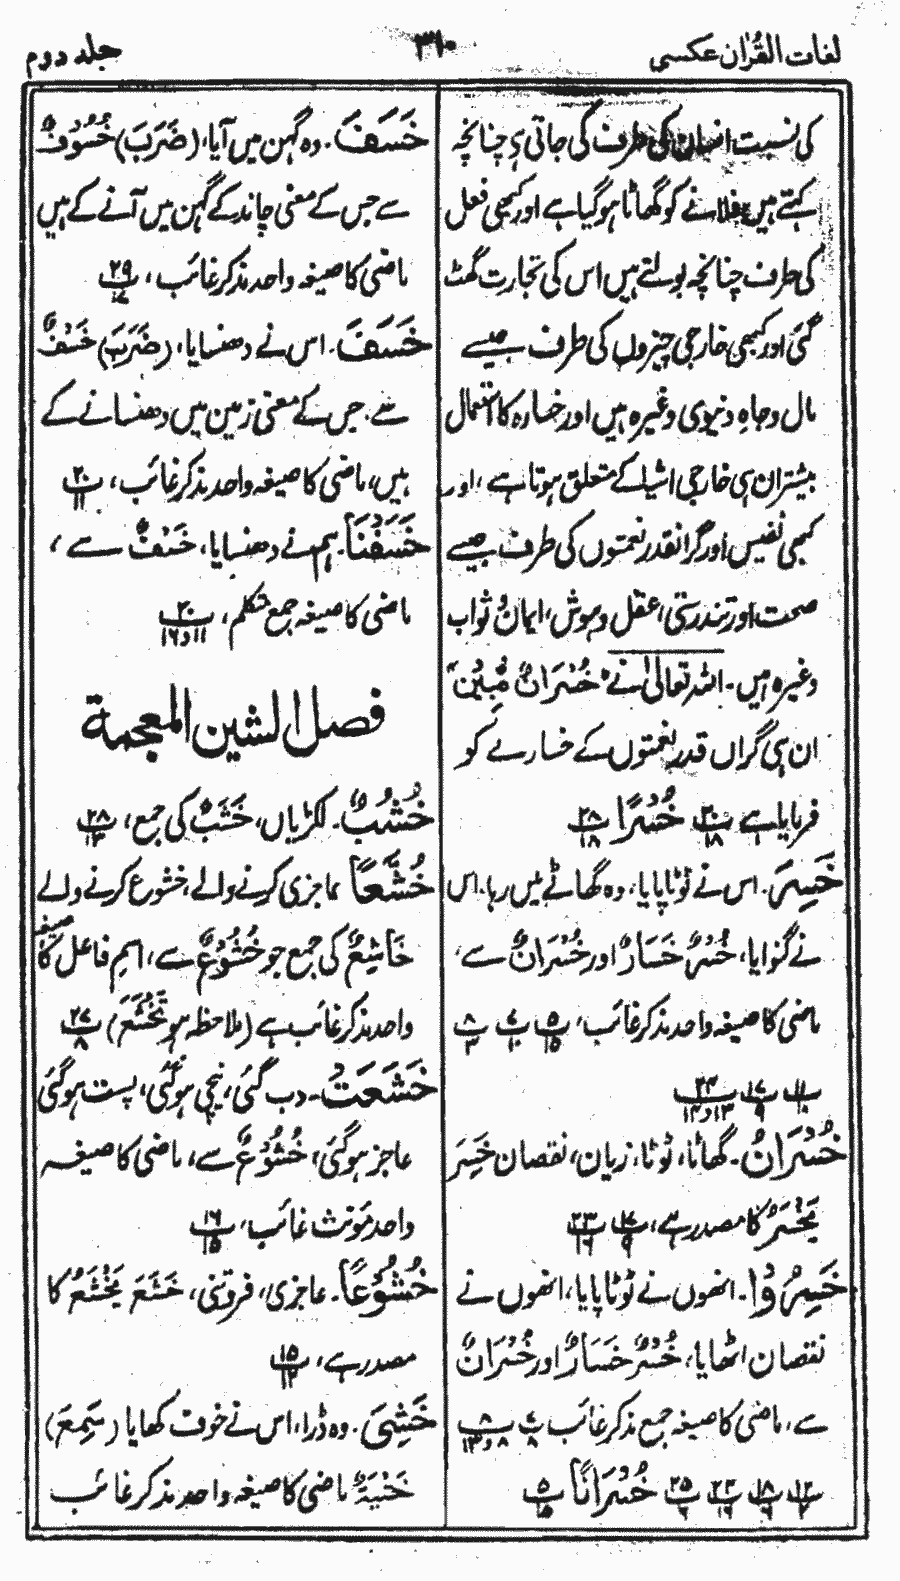 لغات القرآن عکسی
۳۶۰
جلد دوم
کی نسبت انسان کی طرف کی جاتی ہی چنانچہ
کہتے ہیں فلانے کو گھاٹا ہو گیا ہے اور کبھی فعل
کی طرف چنانچہ بولتے ہیں اس کی تجارت گھٹ
گئی اور کبھی خارجی چیزوں کی طرف جیسے
مال و جاہِ دنیوی وغیرہ میں اور خسارہ کا استعمال
بیشتر ان ہی خارجی اشیا کے متعلق ہوتا ہے، اور
کبھی نفیس اور گرانقدر نعمتوں کی طرف جیسے
صحت اور تندرستی، عقل و ہوش، ایمان و ثواب
وغیرہ میں۔ اللہ تعالیٰ نے "خُسْرَانٌ مُّبِیْنٌ"
ان ہی گراں قدر نعمتوں کے خسارے کو
فرمایا ہے ۲۰/۱۸ خُسْرًا ۲۸/۱۸
خَسِرَ۔ اس نے ٹوٹا پایا، وہ گھاٹے میں رہا۔ اس
نے گنوایا، خُسْرٌ خَسَارٌ اور خُسْرَانٌ سے،
ماضی کا صیغہ واحد مذکر غائب، ۵/۱۵ ۷/۱۰ ۸/۳
۱۱/۱۰ ۱۷/۹ ۲۴/۱۳ و ۱۴
خُسْرَانٌ۔ گھاٹا، ٹوٹا، زیان، نقصان خَسِرَ
یَخْسَرُ کا مصدر ہے، ۱۷/۹ ۲۳/۱۶
خَسِرُوْا۔ انھوں نے ٹوٹا پایا، انھوں نے
نقصان اٹھایا، خُسْرٌ خَسَارٌ اور خُسْرَانٌ
سے، ماضی کا صیغہ جمع مذکر غائب ۷/۸ ۸/۸ و ۱۳
۱۲/۲ ۱۸/۶ ۲۴/۱۶ ۲۵/۶ خُسْرَانًا ۵/۱۵
خَسَفَ۔ وہ گہن میں آیا، (ضَرَبَ) خُسُوْفٌ
سے جس کے معنی چاند کے گہن میں آنے کے ہیں
ماضی کا صیغہ واحد مذکر غائب، ۲۹/۱۷
خَسَفَ۔ اس نے دھنسایا، (ضَرَبَ) خَسْفٌ
سے۔ جس کے معنی زمین میں دھنسانے کے
ہیں، ماضی کا صیغہ واحد مذکر غائب، ۲۰/۱۱
خَسَفْنَا۔ ہم نے دھنسایا، خَسْفٌ سے،
ماضی کا صیغہ جمع متکلم، ۲۰/۱۱ و ۱۶
فصل الشین المعجمة
خُشُبٌ۔ لکڑیاں، خَشَبٌ کی جمع، ۲۸/۱۳
خُشَّعًا عاجزی کرنے والے، خشوع کرنے والے
خَاشِعٌ کی جمع جو خُشُوْعٌ سے، اسمِ فاعل کا صیغہ
واحد مذکر غائب ہے (ملاحظہ ہو تَخْشَعَ) ۲۷/۸
خَشَعَتْ۔ دب گئی، نیچی ہو گئی، پست ہو گئی
عاجز ہو گئی، خُشُوْعٌ سے، ماضی کا صیغہ
واحد مؤنث غائب، ۱۶/۱۵
خُشُوْعًا۔ عاجزی، فروتنی، خَشَعَ یَخْشَعُ کا
مصدر ہے، ۱۵/۱۲
خَشِیَ۔ وہ ڈرا، اس نے خوف کھایا (سَمِعَ)
خَشْیَۃٌ ماضی کا صیغہ واحد مذکر غائب